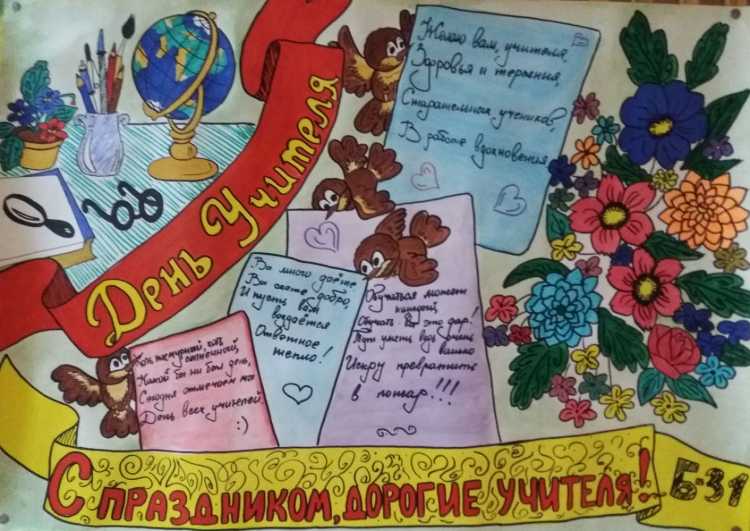 День Учителя
Желаю вам, учителя,
Здоровья и терпения,
Старательных учеников,
В работе вдохновения
Вы много даёте
Вы сеете добро,
И пусть вам
воздаётся
Ответное
тепло!
Обучаться может
каждый,
Обучать - это дар!
уметь
Искру превратить
в пожар!!!
Хоть пасмурный, хоть
солнечный,
Какой бы ни был день,
Сегодня отмечаем мы
День всех учителей
:)
С ПРАЗДНИКОМ, ДОРОГИЕ УЧИТЕЛЯ!
Б-31